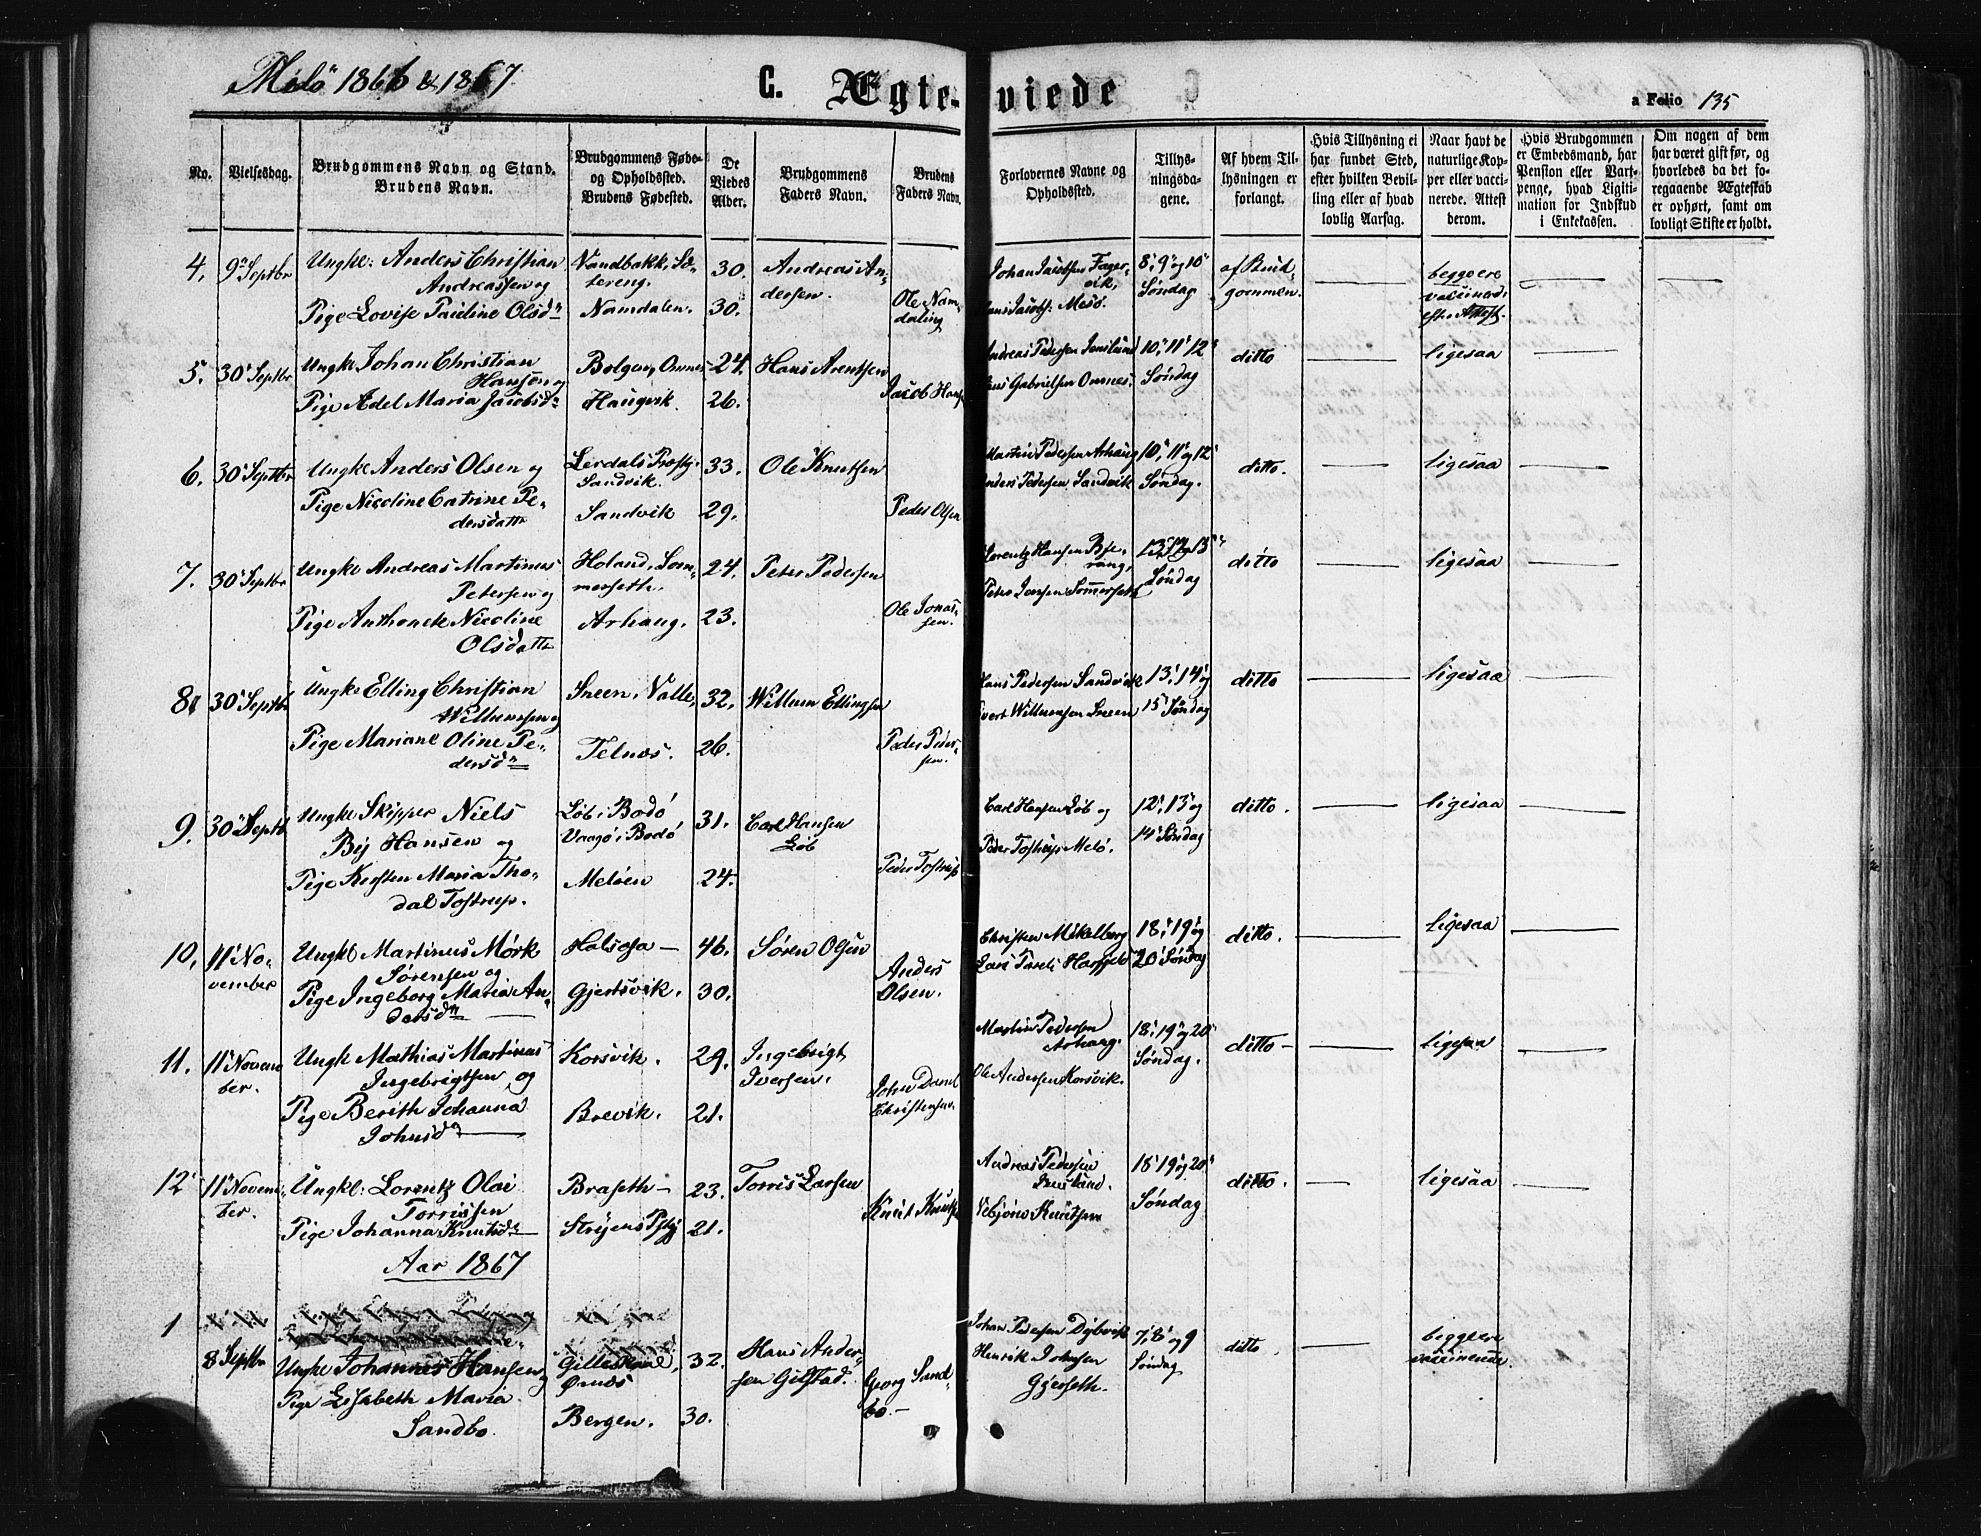 Melö 1866 & 1867
C. Ægte-viede
a Folio 135
No.
Vielsesdag.
Brudgommens Navn og Stand.
Brudens Navn.
Brudgommens Føde-
og Opholdssted.
Brudens Fødested.
De
Viedes
Alder.
Brudgommens
Faders Navn.
Brudens
Faders Navn.
Forlovernes Navne og
Opholdssted.
Tillys-
ningsda-
gene.
Af hvem Til-
lysningen er
forlangt.
Hvis Tillysning ei
har fundet Sted,
efter hvilken Bevil-
ling eller af hvad
lovlig Aarsag.
Naar havt de
naturlige Kop-
per eller vacci-
nerede. Attest
derom.
Hvis Brudgommen
er Embedsmand, har
Pension eller Vart-
penge, hvad Ligiti-
mation for Indskud
i Enkekassen.
Om nogen af dem
har været gift før, og
hvorledes da det fo-
regaaende Ægteskab
er ophørt, samt om
lovligt Skifte er holdt.
4. 9 Septbr
Ungkl: Anders Christian
Andreassen og
Pige Lovise Pauline Olsdn
Vandbakk, Sæ-
tereng.
Namdalen.
30.
30.
Andreas An-
dersen.
Ole Nam-
daling
Johan Jacobsen Fager-
vik,
Hans Jacobs: Mesö.
8', 9' og 10'
Søndag
af Brud-
gommen.
beggo ere
vaccinerede
eft. Attest.
5. 30' Septbr
Ungkl Johan Christian
Hansen og
Pige Adel Maria Jacobsd
Bolgen, Ornes
Haugvik.
24.
26.
Hans Arentsen
Jacob Hans
Andreas Pedersen Jenslund
Gabrielsen Ornnes.
10', 11' 12'
Søndag
ditto
ligesaa
6. 30' Septbr
Ungkl Anders Olsen og
Pige Nicoline Catrine Pe-
dersdattr
Lerdals Præstgj.
Sandvik.
Sandvik
33.
29.
Ole Knutsen
Peder Olsen
Martin Pedersen Arhaug
Anders Pedersen Sandvik
10', 11' og 12'
Søndag.
ditto.
ligesaa
7. 30' Septbr
Ungkl Andreas Martinus
Petersen og
Pige Anthonette Nicoline
Olsdattr
Holand, Som-
merseth.
Arhaug.
24.
23.
Peter Pedersen
Ole Jonas-
sen.
Lorentz Hansen Bje-
rang,
Peter Jensen Sommerseth
Søndag
ditto
ligesaa
8. 30' Septbr
Ungkl Elling Christian
Willumsen og
Pige Mariane Oline Pe-
dersdn
Sneen, Valle
Telnæs.
32.
26.
Willum Ellingsen
Peder Peder-
sen.
Hans Pedersen Sandvik
Evert Willumsen Sneen
13', 14' og
15' Søndag
ditto
ligesaa
9. 30' Septb
Ungkl Skipper Niels
Bij Hansen og
Pige Kirsten Maria Tho-
dal Tostrup.
Løb i Bodö
Vaagö i Bodö
Melöen
31.
24.
Carl Hansen
Løb
Peder Tostrup
Carl Hansen Løb og
Peder Tostrup Melö.
12', 13' og
14' Søndag
ditto.
ligesaa
10. 11' No-
vember
Ungkl Martinus Mörk
Sørensen og
Pige Ingeborg Maria An-
dersdn
Halsosa
Gjertsvik.
46.
30.
Søren Olsen
Anders
Olsen.
Christen Mikelborg
18', 19' og
20' Søndag
ditto.
ligesaa
11. 11' Novem-
ber.
Ungkl Mathias Martinus
Ingebrigtsen og
Pige Berith Johanna
Johnsdn
Korsvik.
Brevik.
29.
21.
Ingebrigt
Iversen.
John Danl
Christensen.
Martin Pedersen
Arhaug.
Ole Andersen Korsvik.
18', 19' og 20'
Søndag.
ditto
ligesaa
12 11' Novem-
ber.
Ungkl: Lorentz Olai
Torrissen
Pige Johanna Knutsdn
Braseth
Stryens Pstgj
23.
21.
Torris Larsen
Knut Knutsn
Andreas Pedersen
Jenslund.
Vebjörn Knutsen
18' 19' og 20'
Søndag
ditto.
ligesaa
Aar 1867
1
8 Septbr
Ungkl Johannes Hansen
Pige Elisabeth Maria
Sandbo.
Gilleskaal,
Ørnæs
Bergen.
32.
30.
Hans Ander-
sen Gilstad.
Georg Sand-
bo.
Johan Pedersen Dybvik
Henrik Johnsen
Gjerseth.
7', 8' og 9
Søndag
ditto.
beggeere
vaccinerede.